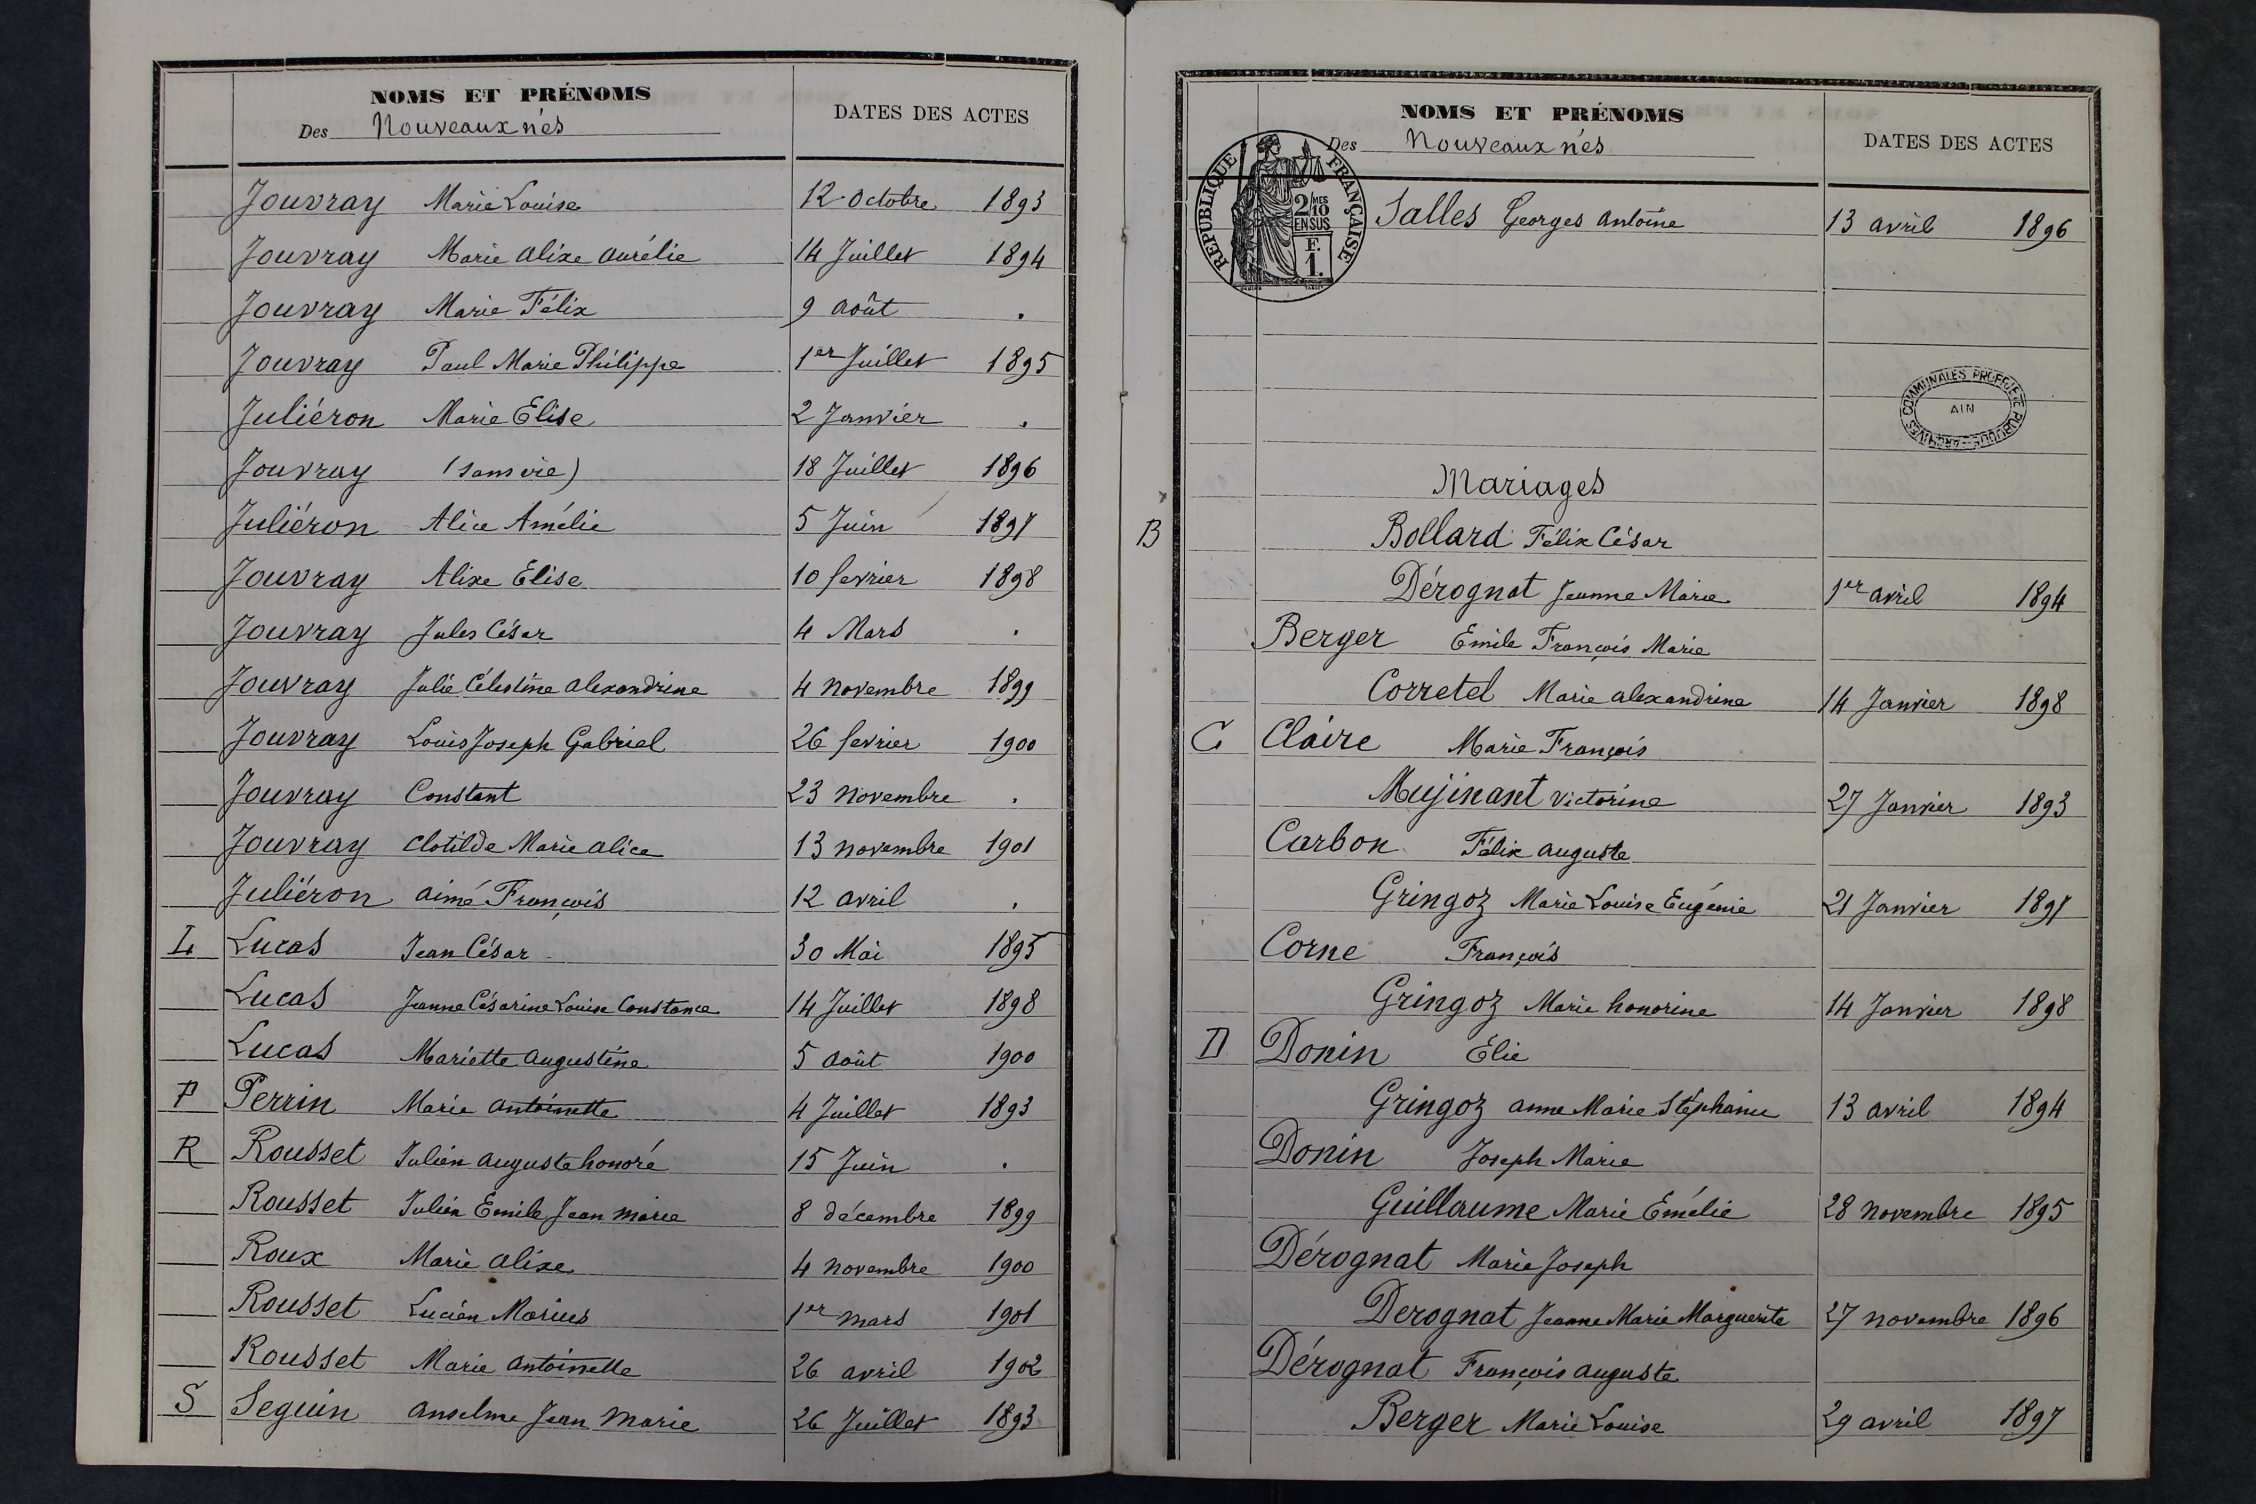 NOMS ET PRÉNOMS
Des Nouveaux nés
DATES DES ACTES
Jouvray Marie Louise 12 Octobre 1893
Jouvray Marie Alixe Aurélie 14 Juillet 1894
Jouvray Marie Félix 9 Août .
Jouvray Paul Marie Philippe 1er Juillet 1895
Juliéron Marie Elise 2 Janvier .
Jouvray (sans vie) 18 Juillet 1896
Juliéron Alice Amélie 5 Juin 1897
Jouvray Alixe Elise 10 fevrier 1898
Jouvray Jules César 4 Mars .
Jouvray Julie Célestine Alexandrine 4 Novembre 1899
Jouvray Louis Joseph Gabriel 26 fevrier 1900
Jouvray Constant 23 Novembre .
Jouvray Clotilde Marie Alice 13 Novembre 1901
Juliéron Aimé François 12 Avril .
L Lucas Jean César 30 Mai 1895
Lucas Jeanne Césarine Louise Constance 14 Juillet 1898
Lucas Mariette Augustine 5 Août 1900
P Perrin Marie Antoinette 4 Juillet 1893
R Rousset Julien Auguste honoré 15 Juin .
Rousset Julien Emile Jean Marie 8 décembre 1899
Roux Marie Alixe 4 Novembre 1900
Rousset Lucien Marius 1er Mars 1901
Rousset Marie Antoinette 26 avril 1902
S Seguin Anselme Jean Marie 26 Juillet 1893
NOMS ET PRÉNOMS
Des Nouveaux nés
DATES DES ACTES
REPUBLIQUE FRANÇAISE
2/10 MES
EN SUS
F.
1.
Salles Georges Antoine 13 avril 1896
ARCHIVES COMMUNALES PROPRIÉTÉ PUBLIQUE
AIN
Mariages
B Bollard Félix César
Dérognat Jeanne Marie 1er avril 1894
Berger Emile François Marie
Corretel Marie Alexandrine 14 Janvier 1898
C Claire Marie François
Mujinant Victorine 27 Janvier 1893
Carbon Félix Auguste
Gringoz Marie Louise Eugénie 21 Janvier 1897
Corne François
Gringoz Marie honorine 14 Janvier 1898
D Donin Élie
Gringoz Anne Marie Stéphanie 13 avril 1894
Donin Joseph Marie
Guillaume Marie Emélie 28 Novembre 1895
Dérognat Marie Joseph
Derognat Jeanne Marie Marguerite 27 Novembre 1896
Dérognat François Auguste
Berger Marie Louise 29 avril 1897